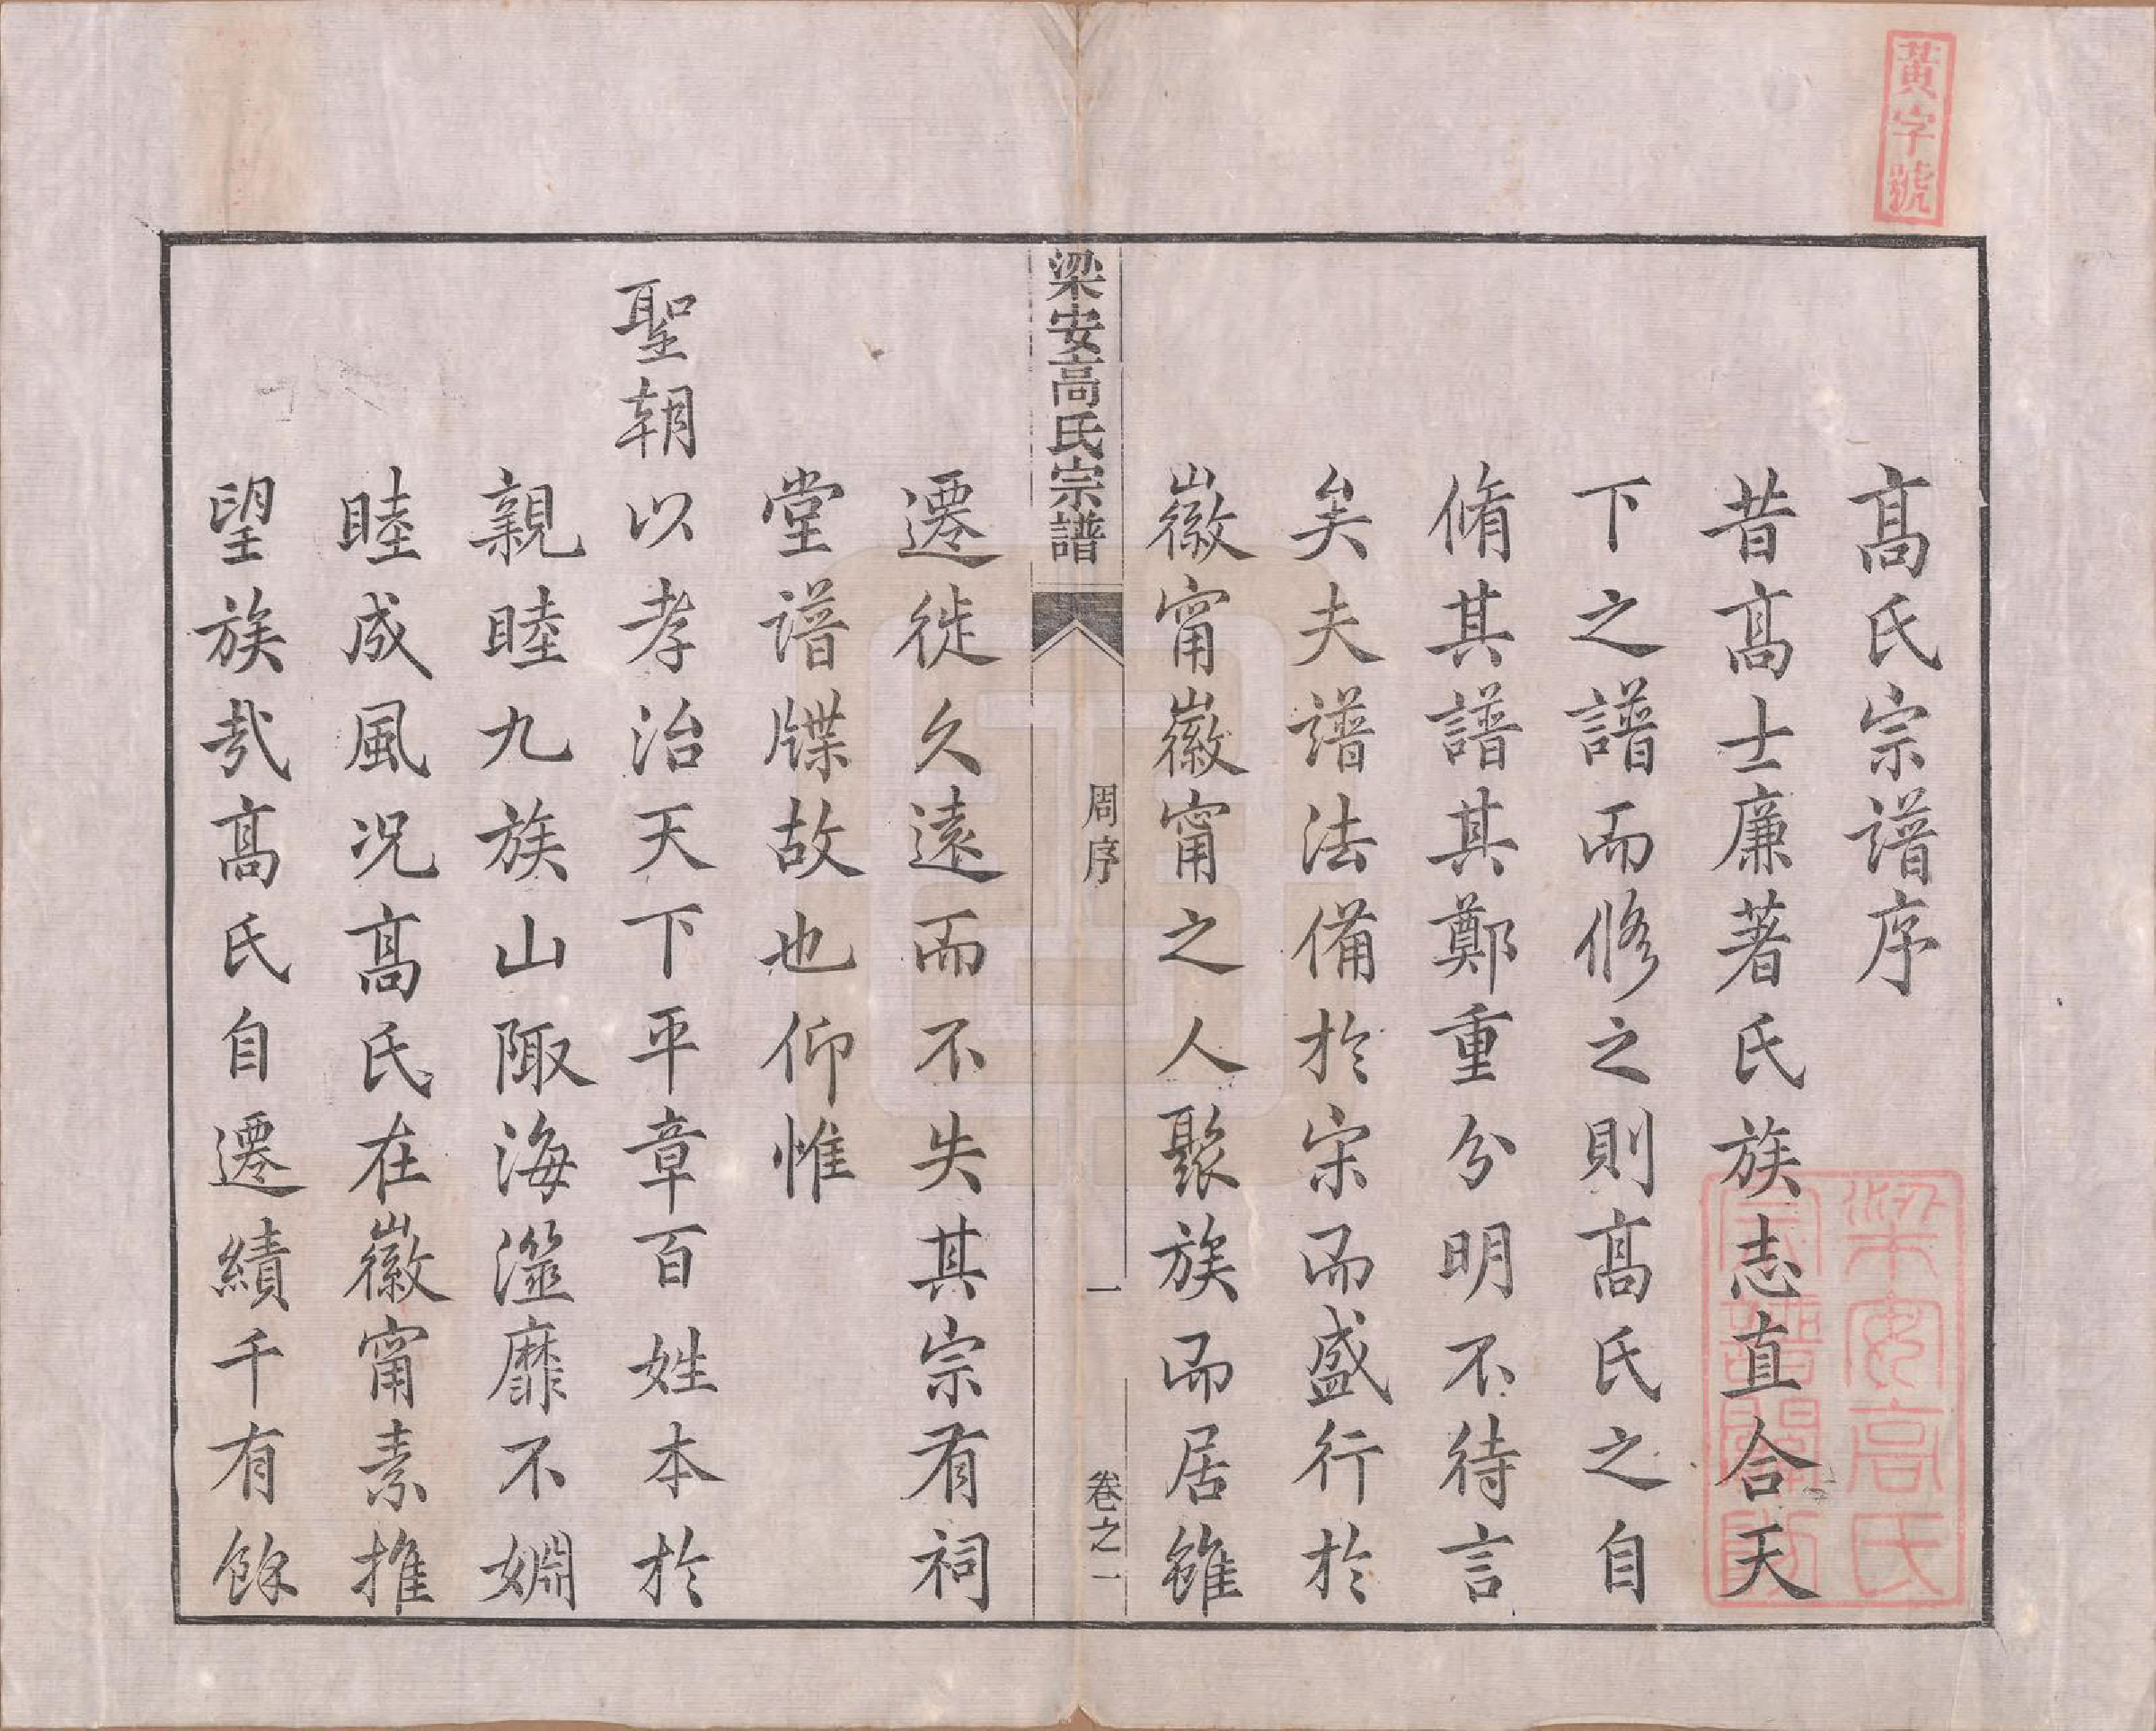 黃字號
高氏宗譜序
昔高士廉著氏族志直合天
下之譜而修之則高氏之自
脩其譜其鄭重分明不待言
矣夫譜法備於宋而盛行於
徽甯徽甯之人聚族而居雖
梁安高氏宗譜
周序
一
卷之一
遷徙久遠而不失其宗有祠
堂譜牒故也仰惟
聖朝以孝治天下平章百姓本於
親睦九族山陬海澨靡不嫺
睦成風况高氏在徽甯素推
望族哉高氏自遷績千有餘
梁安高氏
宗譜關防